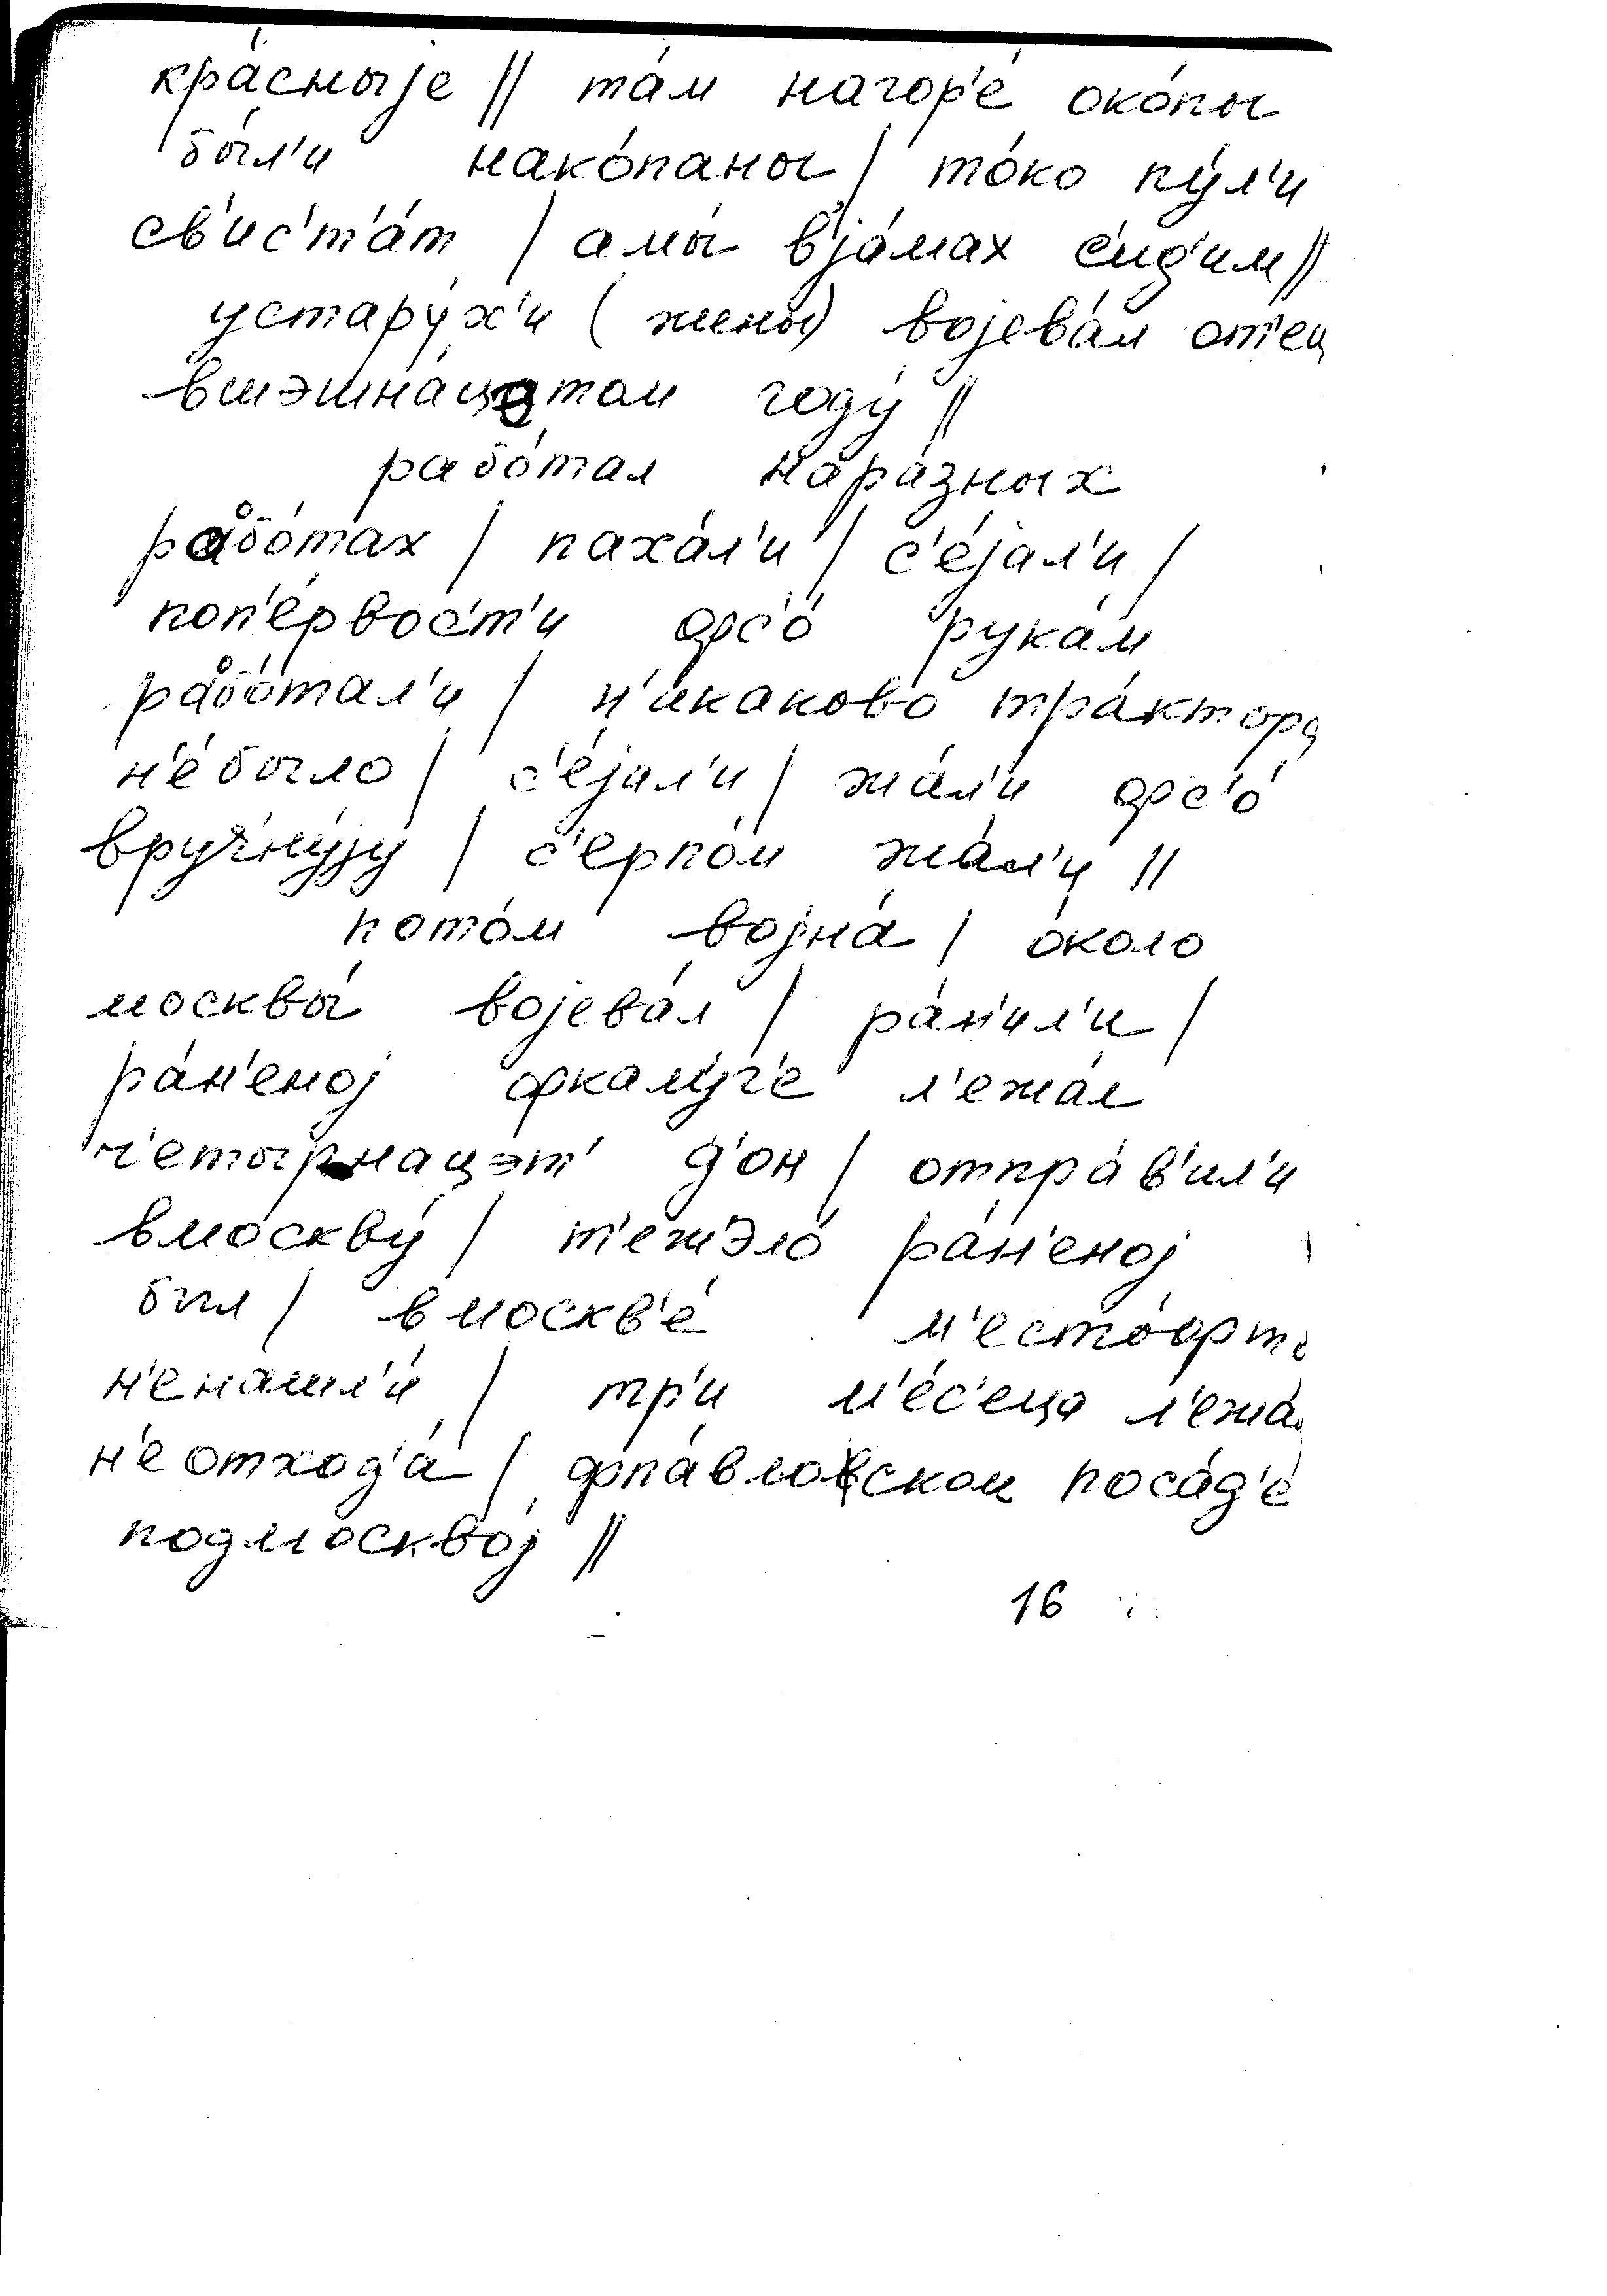 кра́сныjе || та́м нагор'е́ око́пы
бы́л'и нако́паны | то́ко пу́л'и
св'ис'т'а́т | амы́ в'jа́мах с'ид'и́м ||
устару́х'и (жены) воjева́л от'ец
вшэшна́цэтом году́ ||
рабо́тал нара́зных
рабо́тах | паха́л'и | с'е́jал'и |
поп'е́рвос'т'и фс'о́ рука́м
рабо́тал'и | н'икаково́ тра́ктора
н'е́было | с'е́jал'и | жа́л'и фс'о́
вручну́jу | с'ерпо́м жа́л'и ||
пото́м воjна́ | о́коло
москвы́ воjева́л | ра́н'ил'и |
ра́н'еноj фкалу́г'е л'ежа́л
ч'еты́рнацэт' д'он | отпра́в'ил'и
вмоскву́ | т'ежэло́ ра́н'еноj
был | вмоскв'е́
н'енашл'и́ | тр'и м'е́с'еца
н'еотход'а́ | фпа́вловском поса́д'е
подмосквоj ||
16